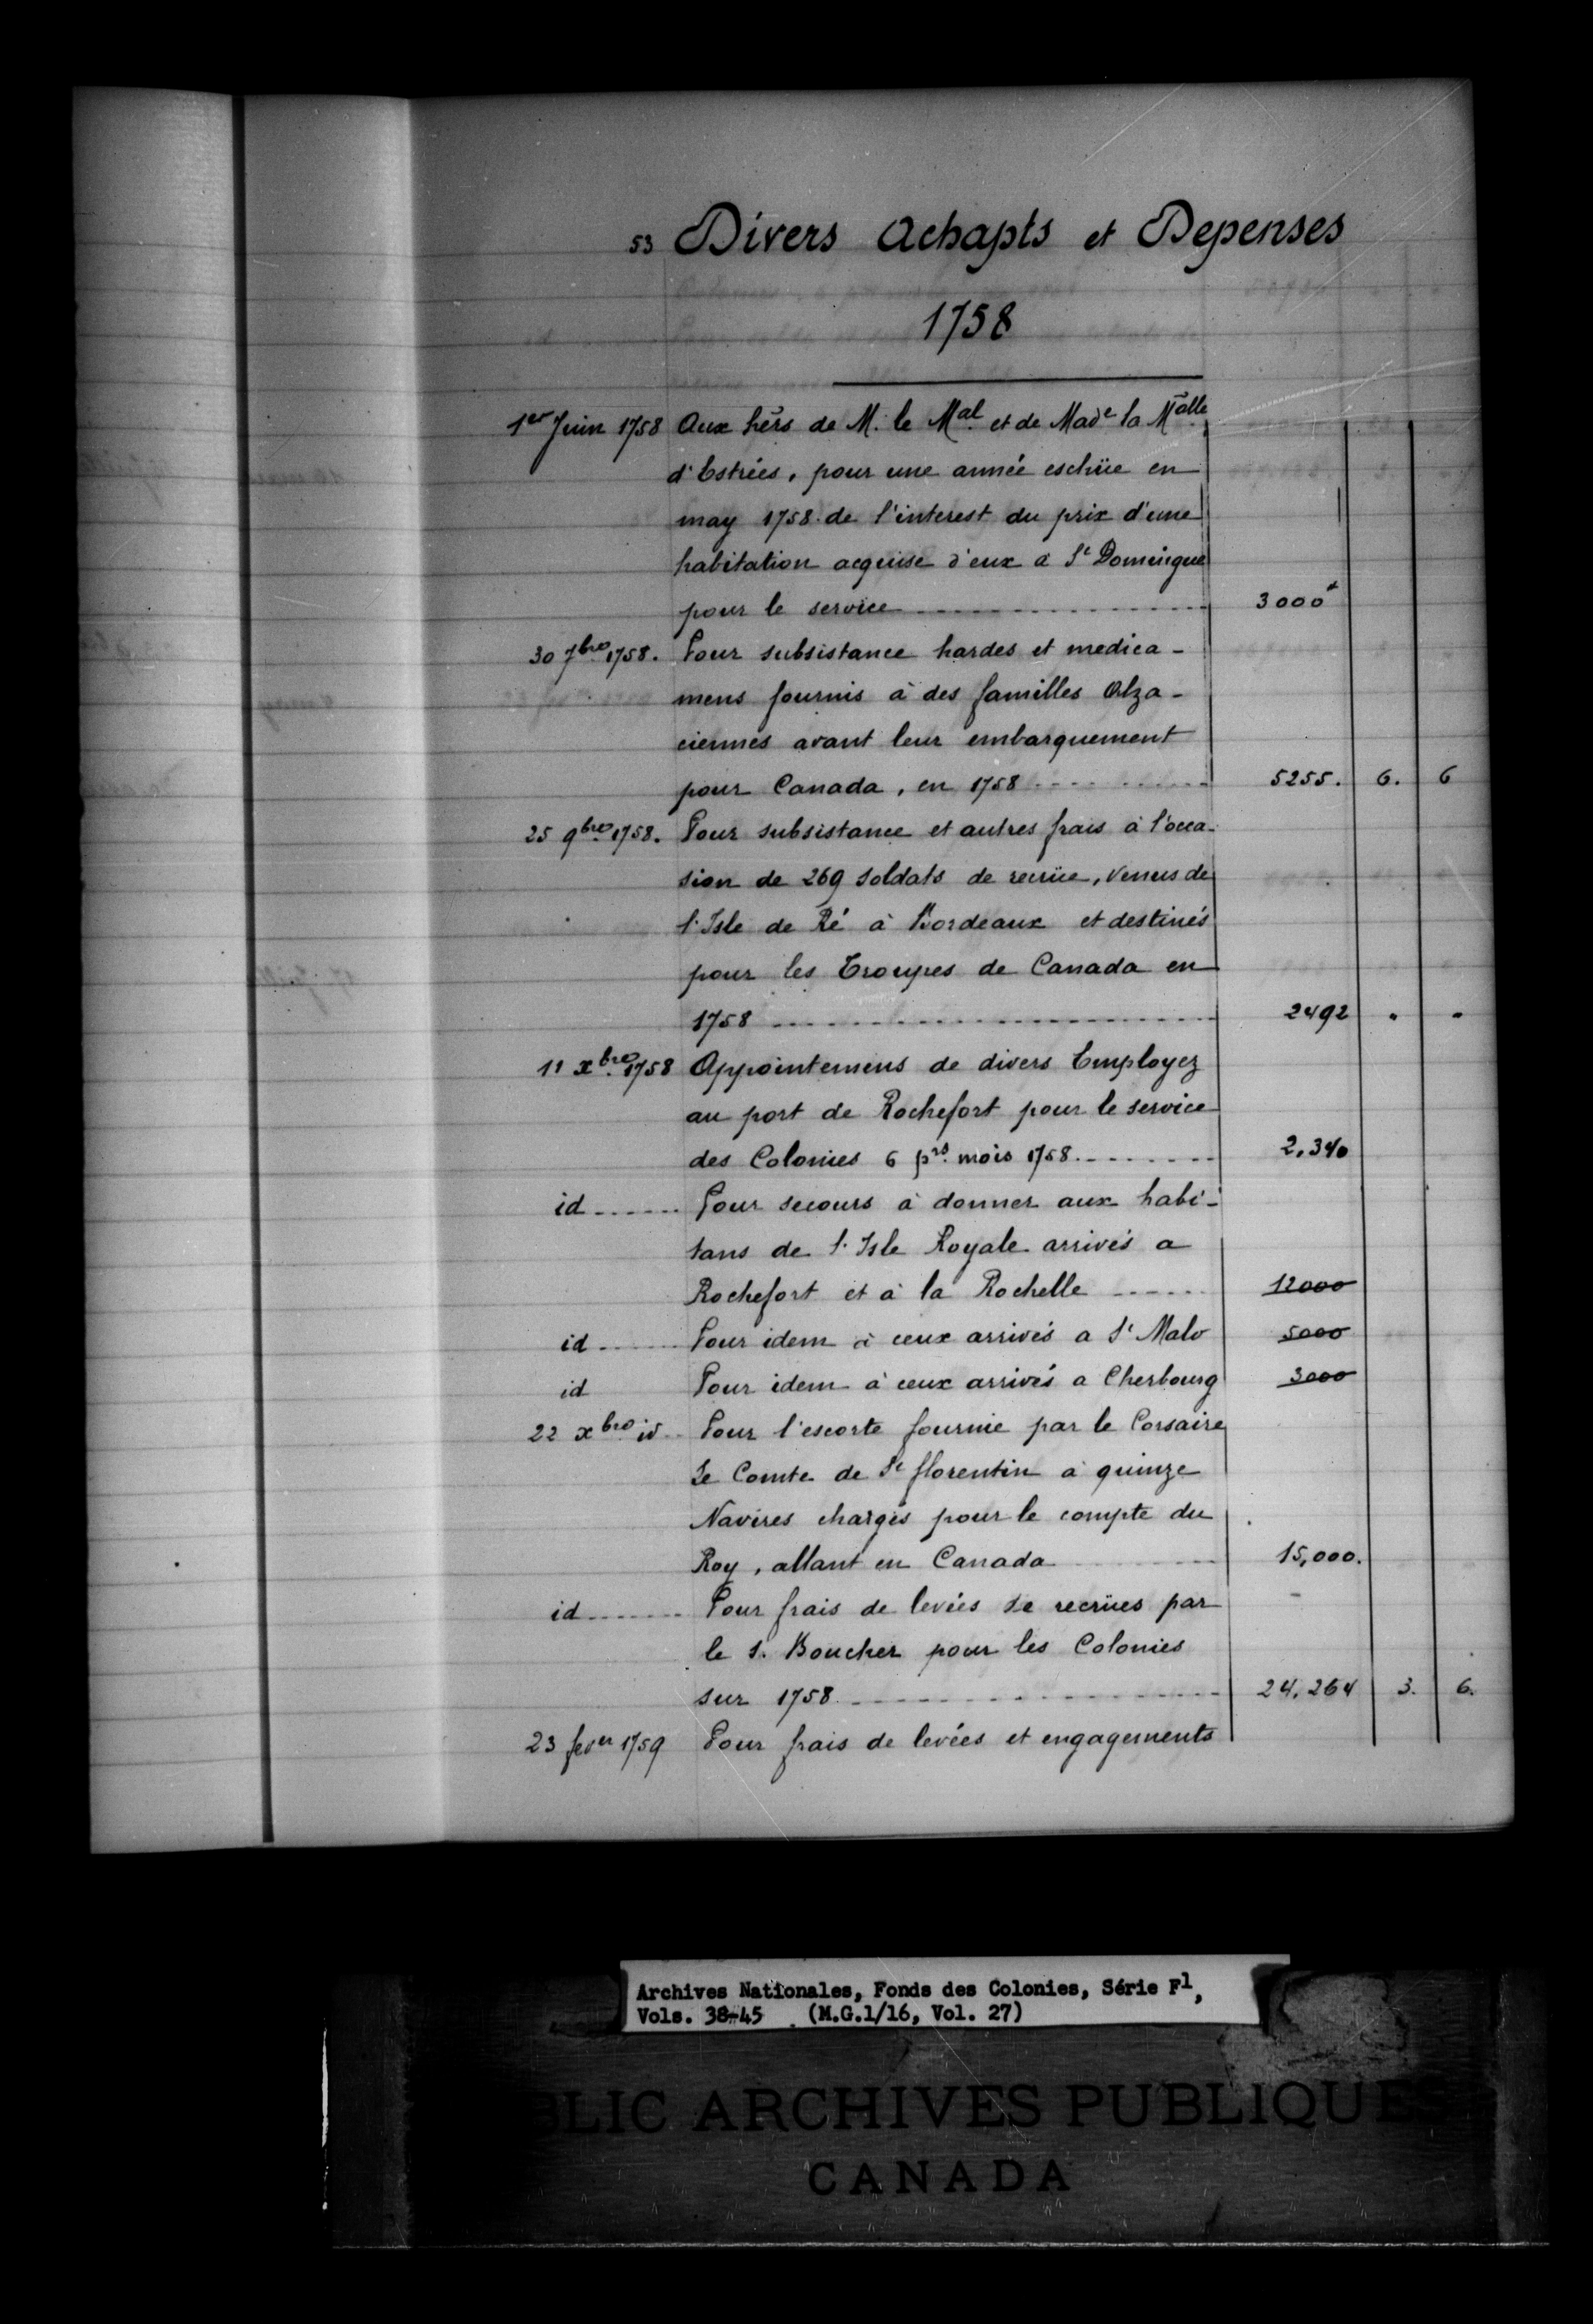 53 Divers Achapts et Depenses
1758
1er Juin 1758 Aux hers de M. le Mal. et de Made la Malle
d'Estrées, pour une année eschüe en
may 1758. de l'interest du prix d'une
habitation acquise d'eux a St Domingue
pour le service 3000
30 7bre 1758. Pour subsistance hardes et medica-
mens fournis à des familles Alza-
ciennes avant leur embarquement
pour Canada, en 1758 5255. 6. 6
25 9bre 1758. Pour subsistance et autres frais à l'occa-
sion de 269 soldats de recrüe, venus de
l'Isle de Ré à Bordeaux et destinés
pour les Troupes de Canada en
1758 2492 " "
11 xbre 1758 Appointemens de divers Employez
au port de Rochefort pour le service
des Colonies 6 prs. mois 1758. 2,340
id Pour secours à donner aux habi-
tans de l'Isle Royale arrivés a
Rochefort et à la Rochelle 12000
id Pour idem à ceux arrivés a St Malo 5000
id Pour idem à ceux arrivés a Cherbourg 3000
22 xbre id Pour l'escorte fournie par le Corsaire
Le Comte de St florentin à quinze
Navires chargés pour le compte du
Roy, allant en Canada 15,000.
id Pour frais de levées de recrües par
le S. Boucher pour les Colonies
sur 1758 24,264 3. 6.
23 fever 1759 Pour frais de levées et engagements
Archives Nationales, Fonds des Colonies, Série F1,
Vols. 38-45 (M.G.1/16, Vol. 27)
BLIC ARCHIVES PUBLIQUES
CANADA